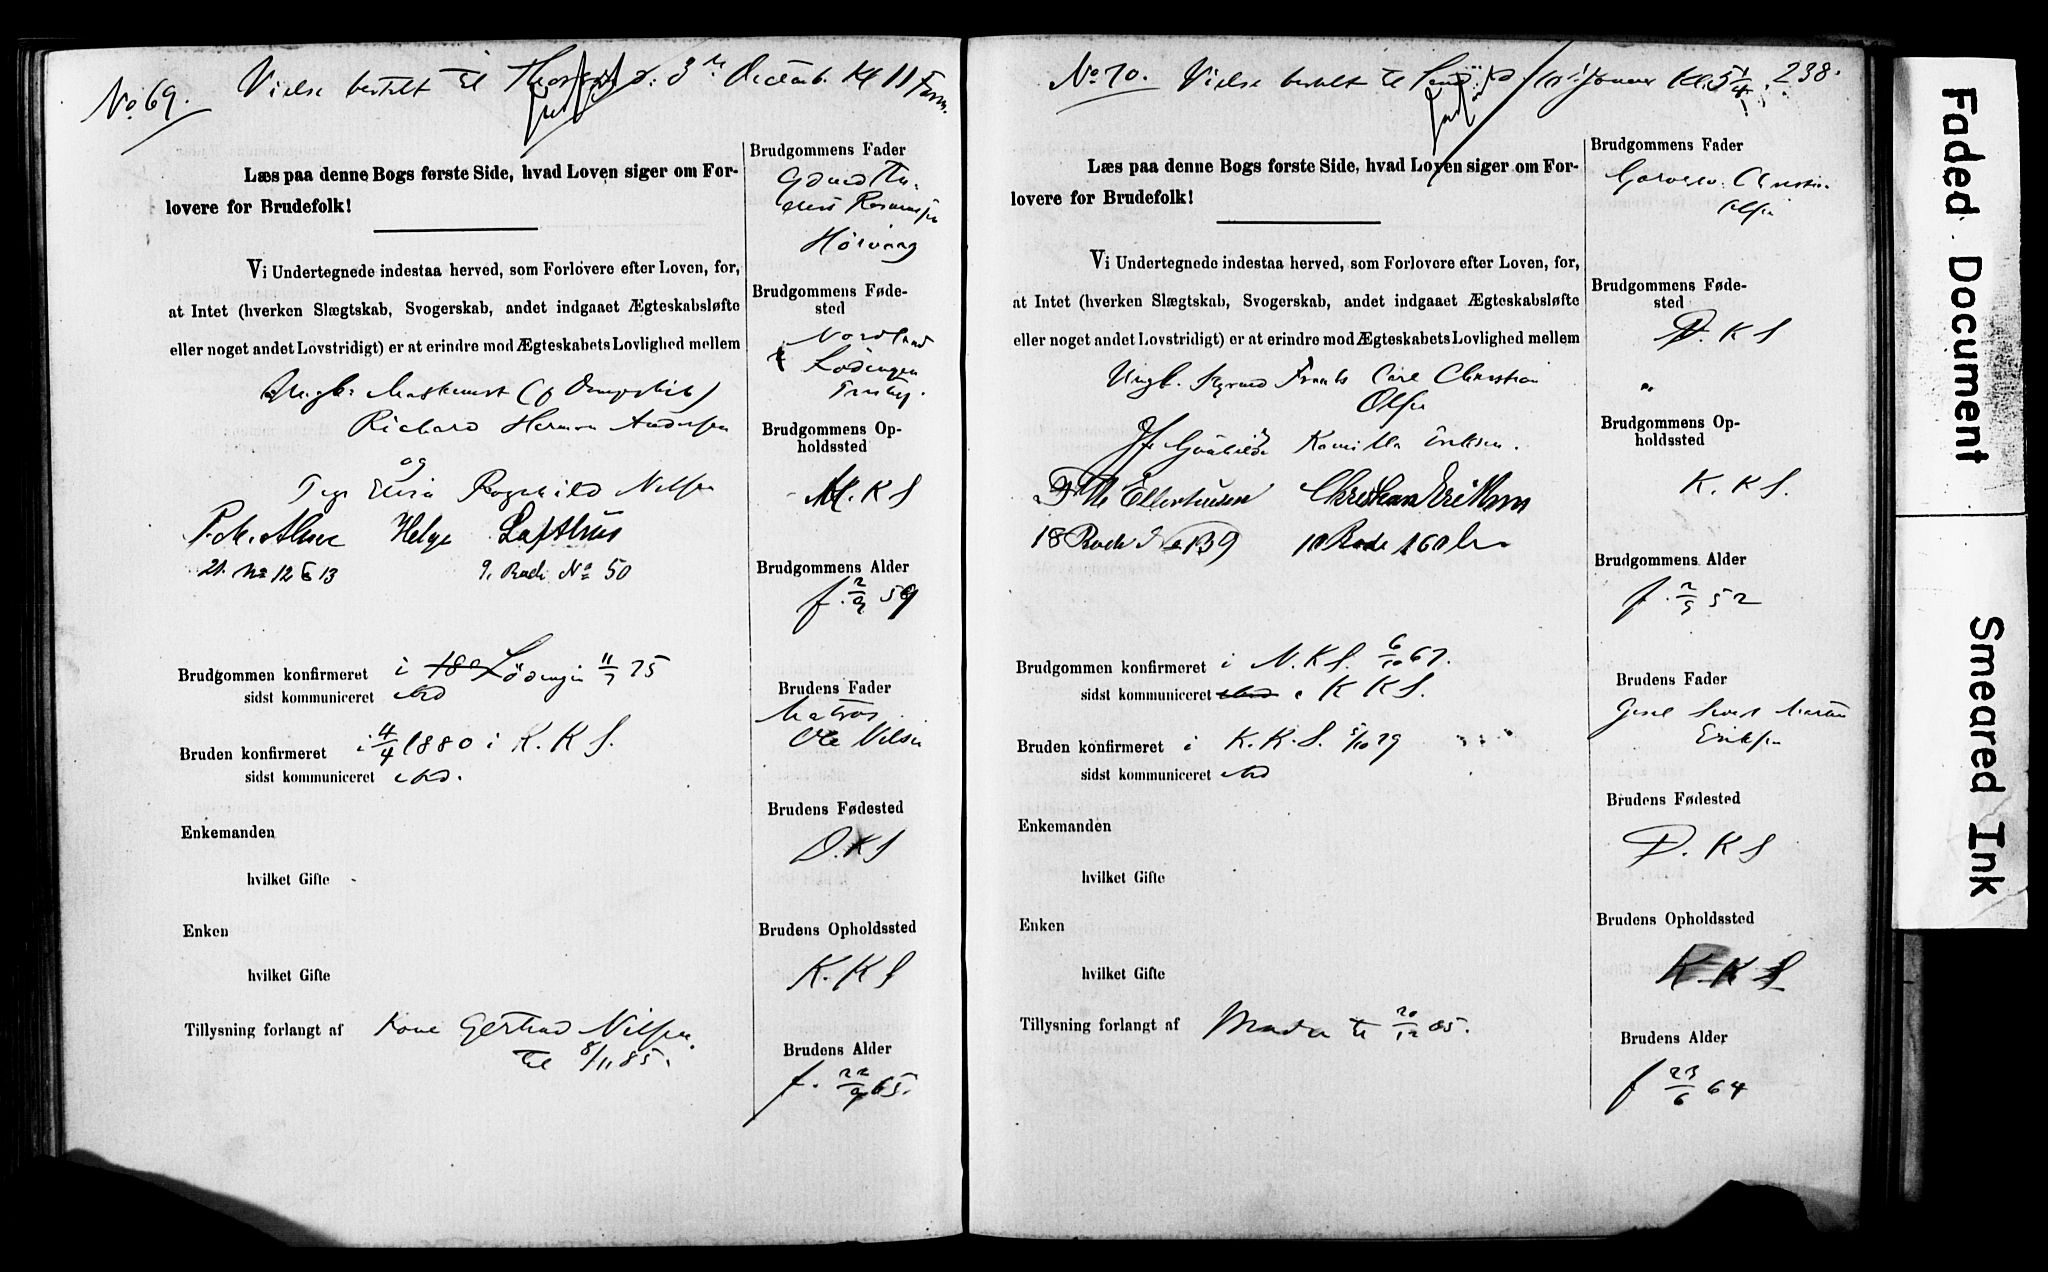 No 69. Vielse bestilt til Thorsdag d: 3 Decemb. Kl 11 Form.
Læs paa denne Bogs første Side, hvad Loven siger om For-
lovere for Brudefolk!
Vi Undertegnede indestaa herved, som Forlovere efter Loven, for,
at Intet (hverken Slægtskab, Svogerskab, andet indgaaet Ægteskabsløfte
eller noget andet Lovstridigt) er at erindre mod Ægteskabets Lovlighed mellem
Ungk. Maskinist
Richard Herman Andersen
og
Pige Elisa Ragnhild Nilsen
Helge Lofthus
21. No 12 & 13 9. Rode No 50
Brudgommen konfirmeret i Lödingen 11/7 75
sidst kommuniceret
Bruden konfirmeret i 4/4 1880 i K. K S.
sidst kommuniceret
Enkemanden
hvilket Gifte
Enken
hvilket Gifte
Tillysning forlangt af Kone Gertrud Nilsen
til 8/11 85.
Brudgommens Fader
Rasmussen
Hörvaag
Brudgommens Føde-
sted
Nordland
Lödingen
Brudgommens Op-
holdssted
K S
Brudgommens Alder
f. 2/9 59
Brudens Fader
Matros
Ole Nilsen
Brudens Fødested
D. K S
Brudens Opholdssted
K. K S
Brudens Alder
f. 22/9 65.
No 70. Vielse bestilt til Januar Kl. 5 1/4 238.
Læs paa denne Bogs første Side, hvad Loven siger om For-
lovere for Brudefolk!
Vi Undertegnede indestaa herved, som Forlovere efter Loven, for,
at Intet (hverken Slægtskab, Svogerskab, andet indgaaet Ægteskabsløfte
eller noget andet Lovstridigt) er at erindre mod Ægteskabets Lovlighed mellem
Ungk. Frants Carl Christian
Olsen
Kamilla Eriksen.
Ellerhusen Christian Eriksen
18 Rode No 139 10 Rode 160
Brudgommen konfirmeret i N. K S. 6/10 67.
sidst kommuniceret i K K S.
Bruden konfirmeret i K. K. S. 5/10 79
sidst kommuniceret
Enkemanden
hvilket Gifte
Enken
hvilket Gifte
Tillysning forlangt af Moder til 20/12 85.
Brudgommens Fader
Christian
Olsen
Brudgommens Føde-
sted
D. K S
Brudgommens Op-
holdssted
K. K S.
Brudgommens Alder
f. 2/9 52
Brudens Fader
Eriksen
Brudens Fødested
D. K S
Brudens Opholdssted
K. K S
Brudens Alder
f 23/6 64
Faded Document
Smeared Ink